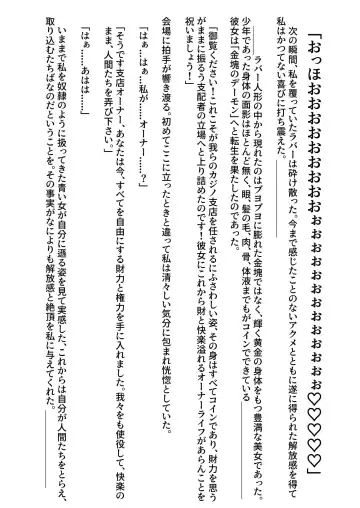 「おっほおおおおおおおおおおおおぉぉぉぉぉぉぉ♡♡♡♡♡」
次の瞬間、私を覆っていたラバーは砕け散った。今まで感じたことのないアクメとともに遂に得られた解放感を得て
私はかつてない喜びに打ち震えた。
ラバー人形の中から現れたのはブヨブヨに膨れた金塊ではなく、輝く黄金の身体をもつ豊満な美女であった。
少年であった身体の面影はほとんど無く、眼、髪の毛、肉、骨、体液までもがコインでできている
彼女は「金塊のデーモン」へと転生を果たしたのであった。
「御覧ください！これこそが我らのカジノ支店を任されるにふさわしい姿、その身はすべてコインであり、財力を思う
がままに振るう支配者の立場へと上り詰めたのです！彼女にこれから財と快楽溢れるオーナーライフがあらんことを
祝いましょう！」
会場に拍手が響き渡る。初めてここに立ったときと違って私は清々しい気分に包まれ恍惚としていた。
「はぁ…はぁ…私が……オーナー……？」
「そうです支店オーナー、あなたは今、すべてを自由にする財力と権力を手に入れました。我々をも使役して、快楽の
まま、人間たちを弄び下さい。」
「はぁ……あはは……」
いままで私を奴隷のように扱ってきた青い女が自分に遜る姿を見て実感した、これからは自分が人間たちをとらえ、
取り込むたちばなのだということを。その事実がなによりも解放感と絶頂を私に与えてくれた。